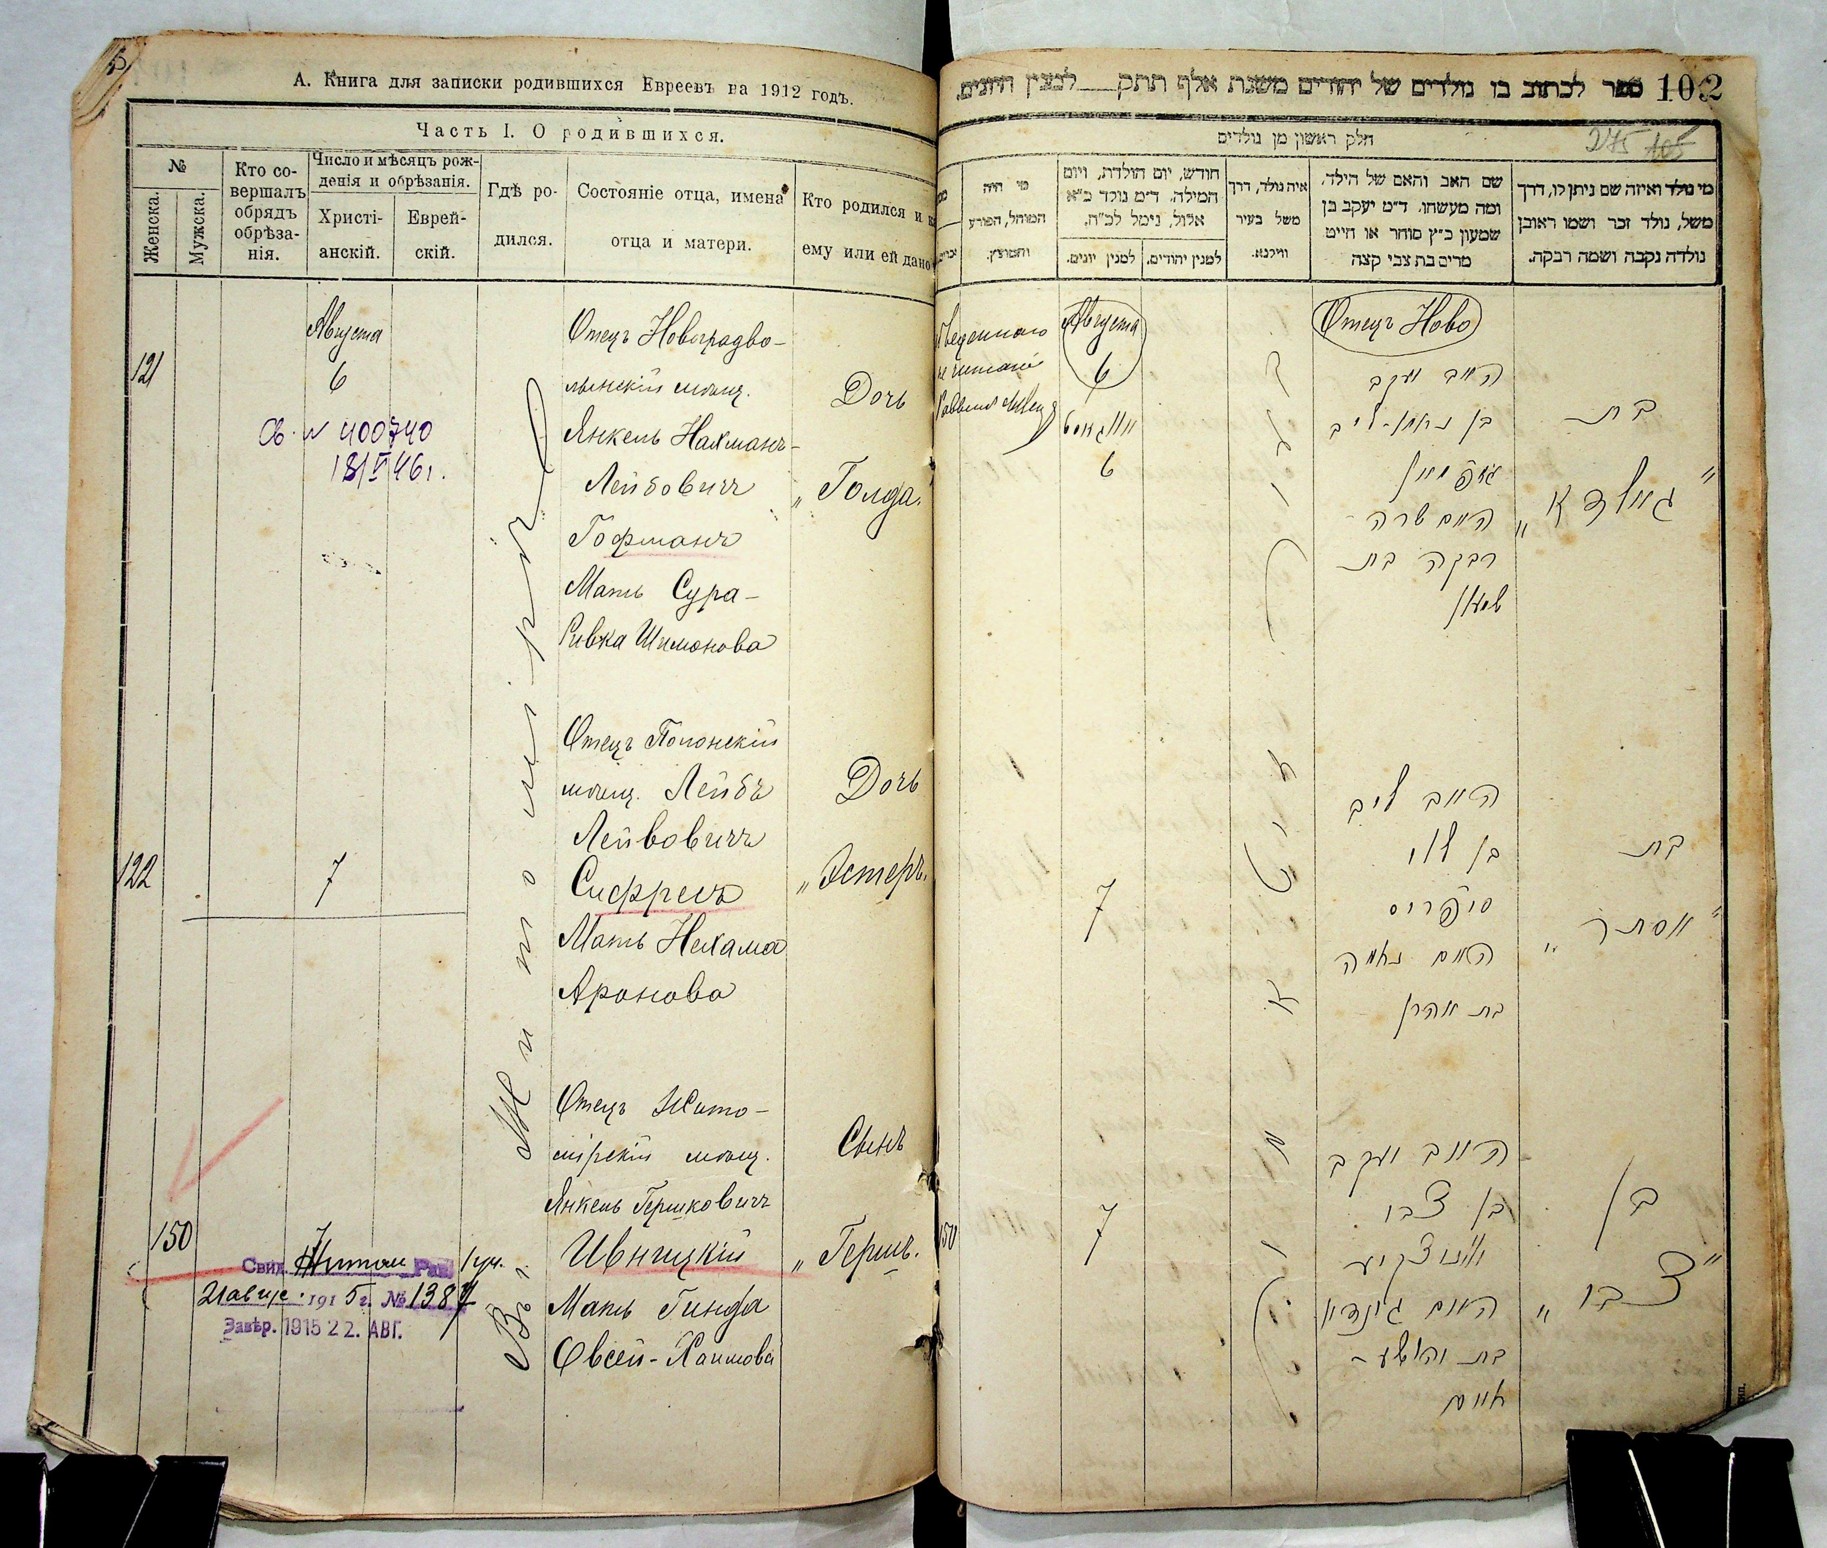 А. Книга для записки родившихся Евреевъ на 1912 годъ.
Часть I. О родившихся.
№
Женска.
Мужска.
Кто со-
вершалъ
обрядъ
обрѣза-
нія.
Число и мѣсяцъ рож-
денія и обрѣзанія.
Христі-
анскій.
Еврей-
скій.
Гдѣ ро-
дился.
Состояніе отца, имена
отца и матери.
Кто родился и
ему или ей дано
121
Августа
6
Св. № 400740
Въ Житомірѣ
Отецъ Новоградво-
лынскій мѣщ.
Янкель Нахманъ-
Лейбовичъ
Гофманъ
Мать Сура-
Ривка Шимонова
Дочь
„Голда.“
122
7
Отецъ Полонскій
мѣщ. Лейбъ
Лейвовичъ
Сифрисъ
Мать Нехама
Аронова
Дочь
„Эстеръ.
150
7
Отецъ Жито-
мірскій мѣщ.
Янкель Гершковичъ
Ивницкій
Мать Гинда
Овсей-Хаимова
Сынъ
„Гершъ.
Свид. Житом. Рав.
21 авг. 1915 г. № 1387
Завѣр. 1915 22. АВГ.
ספר לכתוב בו נולדים של יהודים משנת אלף תתק לפנין היונים. 102
275 105
חלק ראשון מן נולדים
מי היה
המוהל, הפורע
והמוצץ.
חודש, יום הולדת, ויום
המילה. ד״מ נולד כ״א
אלול, נימל לכ״ח.
למנין יונים.
למנין יהודים.
איה נולד, דרך
משל בעיר
ווילנא.
שם האב והאם של הילד.
ומה מעשהו. ד״מ יעקב בן
שמעון כ״ץ סוחר או חייט
מרים בת צבי קצה
מי נולד ואיזה שם ניתן לו, דרך
משל, נולד זכר ושמו ראובן
נולדה נקבה ושמה רבקה.
Августа
6
אויגוסט
6
Отецъ Ново
האב יעקב
בן נחמן-ליב
גאפמאן
האם שרה
רבקה בת
שמעון
בת
„גאלדא“
7
האב ליב
בן לוי
סיפריס
האם נחמה
בת אהרן
בת
„אסתר“
150
7
האב יעקב
בן צבי
איווניצקיי
האם גינדא
בת יהושע-
חיים
בן
„צבי“